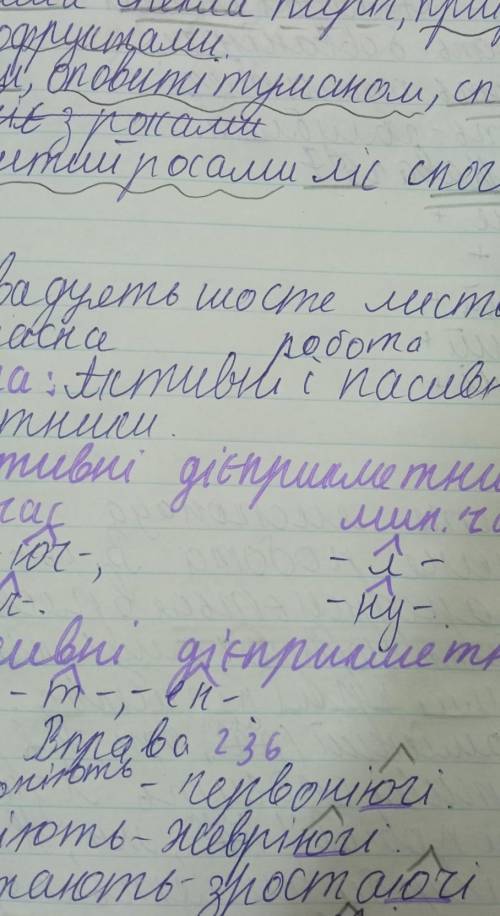 спекла пиріг,
офруктами.
, оповиті туманом, сп
з роками
итий росами ліс спог
вадцять шосте листо
ласна робота
а: Активні і пасивн
тники.
тивні дієприкметни
час мин. ча
-юч-, -л-
-ну-.
сивні дієприкметн
-т-, -ен-
Вправа 236
оніють - червоніючі.
іють - жевріючі.
тають - зростаючі